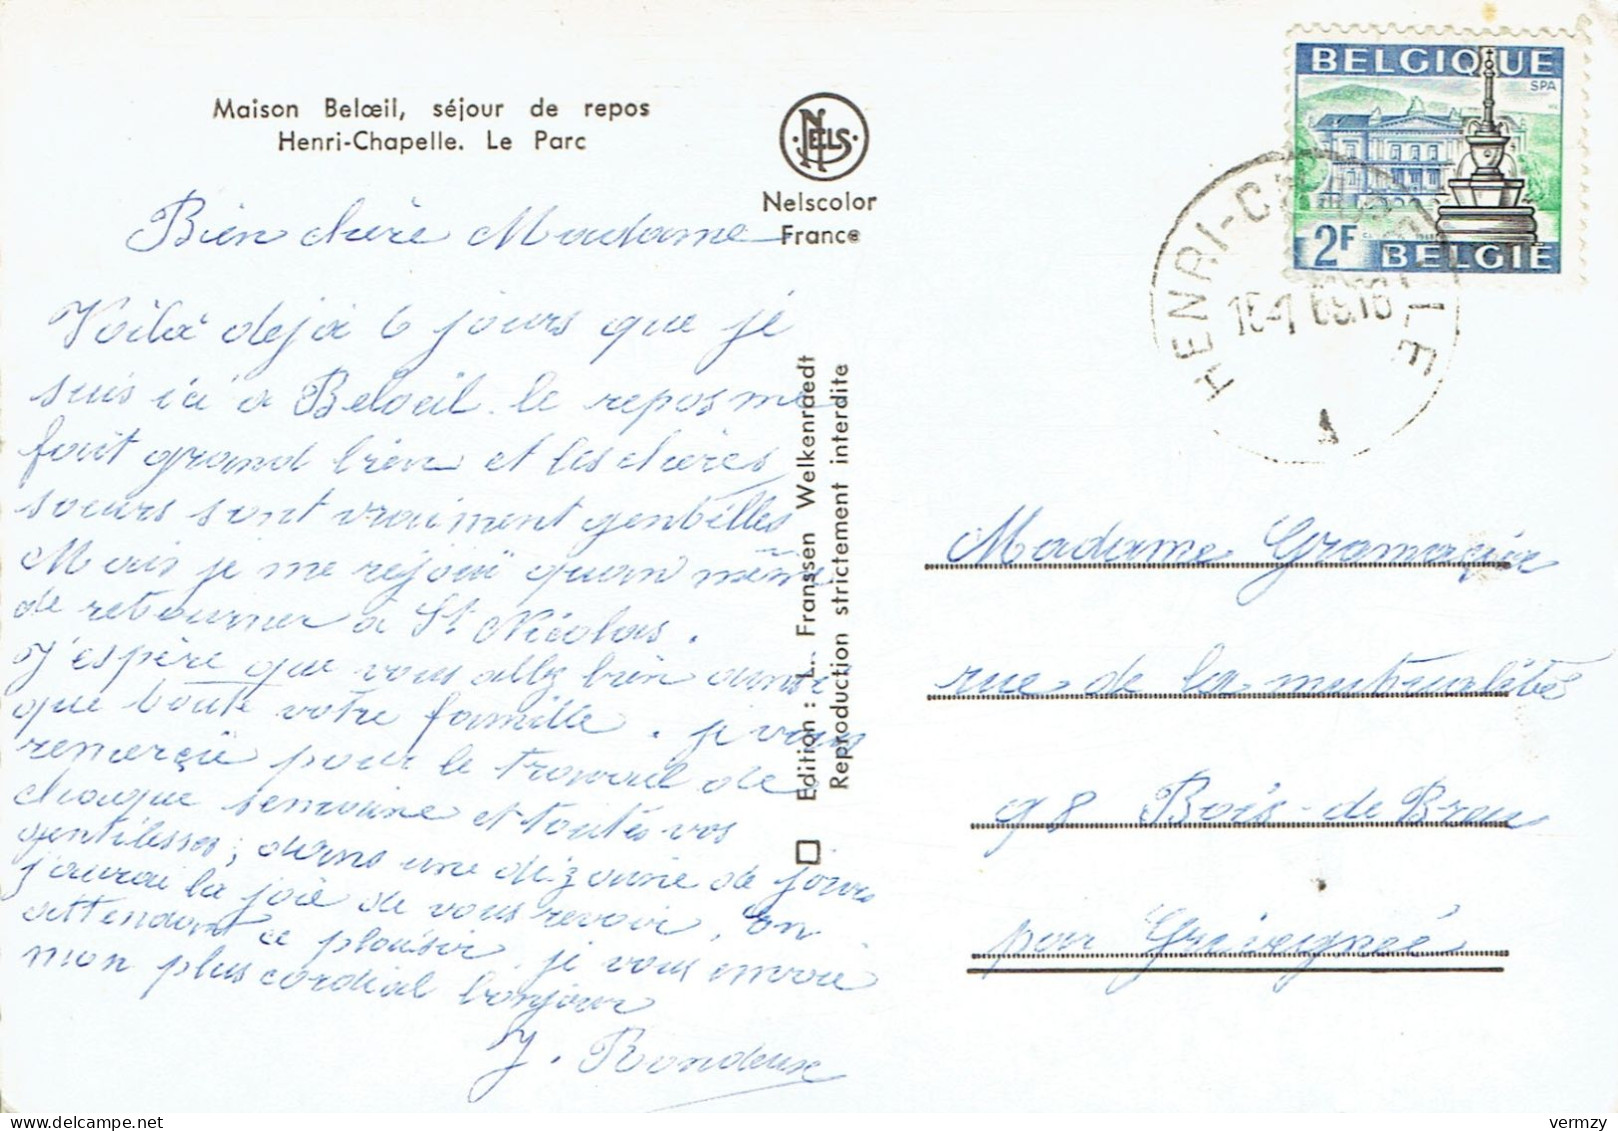 Maison Belœil, séjour de repos
Henri-Chapelle. Le Parc
NELS
Nelscolor
France
Bien chère Madame
Voilà deja 6 jours que je
suis ici à Beloeil. le repos me
fait grand bien et les chères
soeurs sont vraiment gentilles
Mais je me rejoui quan même
de retourner à St Nicolas.
J'espère que vous allez bien ainsi
que toute votre famille. je vous
remercie pour le travail de
chaque semaine et toutes vos
gentilesses; dans une dizaine de jours
j'aurai la joie de vous revoir, en
attendant ce plaisir je vous envoie
mon plus cordial bonjour
J. Rondeux
Edition : L. Franssen Welkenraedt
Reproduction strictement interdite
BELGIQUE
SPA
2F
BELGIË
HENRI-C
LLE
15-1 69.16
A
Madame
rue de la mutualité
98 Bois-de Breu
par Grivegnée
vermzy